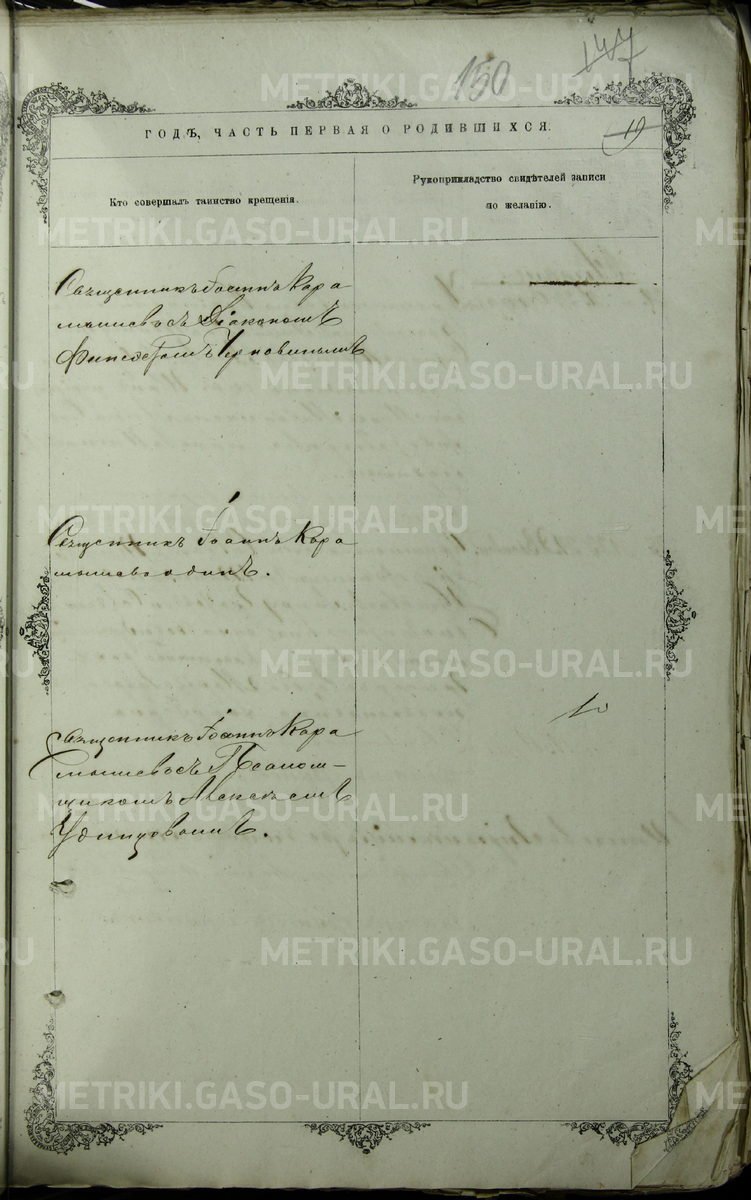 147
150
19
ГОДЪ, ЧАСТЬ ПЕРВАЯ О РОДИВШИХСЯ.
Кто совершалъ таинство крещенія.
Рукоприкладство свидѣтелей записи
по желанію.
Священникъ Іоаннъ Кара
мышевъ съ Діакономъ
Священникъ Іоаннъ Кара
мышевъ одинъ.
Священникъ Іоаннъ Кара
мышевъ съ Псалом-
щикомъ Алексѣемъ
Удинцовымъ.
METRIKI.GASO-URAL.RU